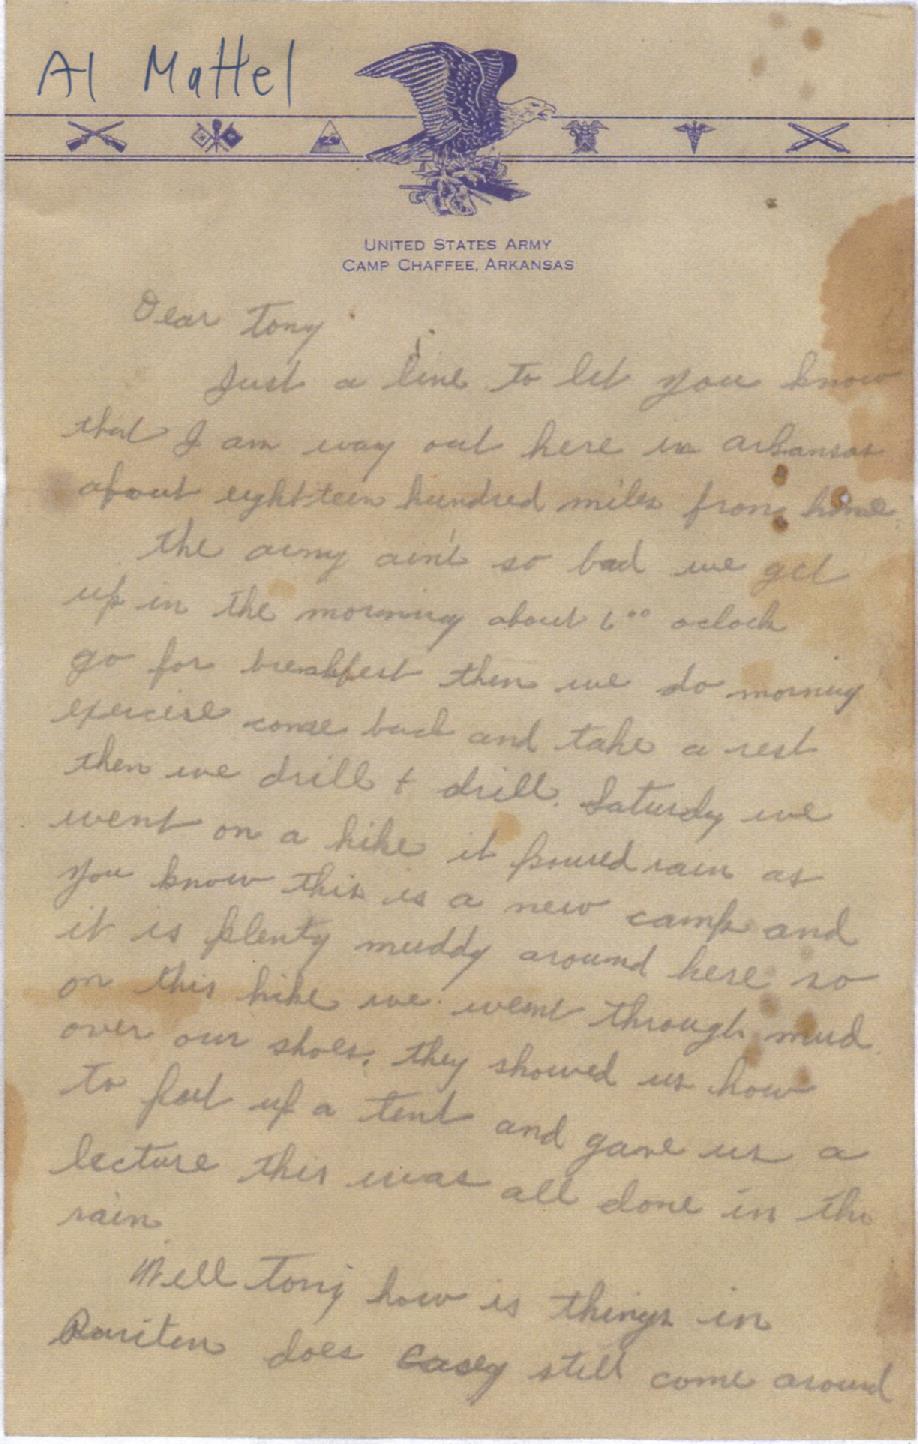 Al Mattel
UNITED STATES ARMY
CAMP CHAFFEE, ARKANSAS
Dear Tony
Just a line to let you know
that I am way out here in arkansas
about eighteen hundred miles from home
the army ain't so bad we get
up in the morning about 6⁰⁰ oclock
go for breakfest then we do morning
exercise come back and take a rest
then we drill & drill. Saturdy we
went on a hike it poured rain as
you know this is a new camp and
it is plenty muddy around here so
on this hike we went through mud
over our shoes. they showed us how
to put up a tent and gave us a
lecture this was all done in the
rain
Well Tony how is things in
Raritan does Casey still come around